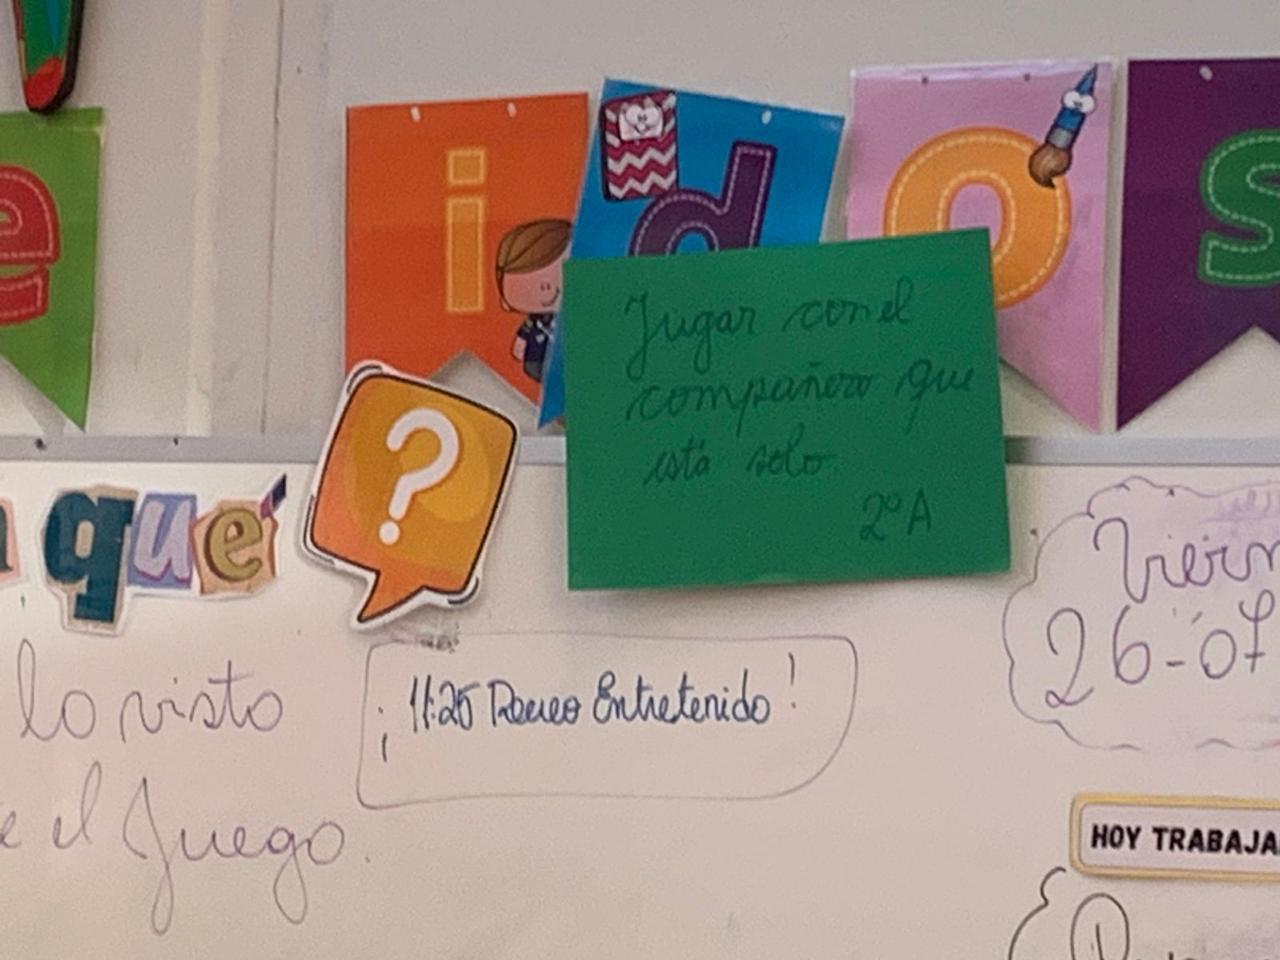 e i d o s
Jugar con el
compañero que
está solo.
2º A
qué ?
lo visto
¡11:25 Recreo Entretenido!
el Juego.
26-07
HOY TRABAJA